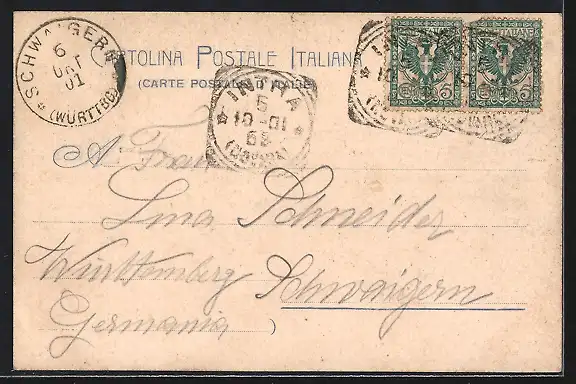 SCHWAIGERN
6
OKT
01
(WÜRTTBG)
CARTOLINA POSTALE ITALIANA
(CARTE POSTALE D'ITALIE)
INTRA
5
10-01
(NOVARA)
POSTE ITALIANE
5 5
A Frau
Lina Schneider
Württemberg Schwaigern
Germania